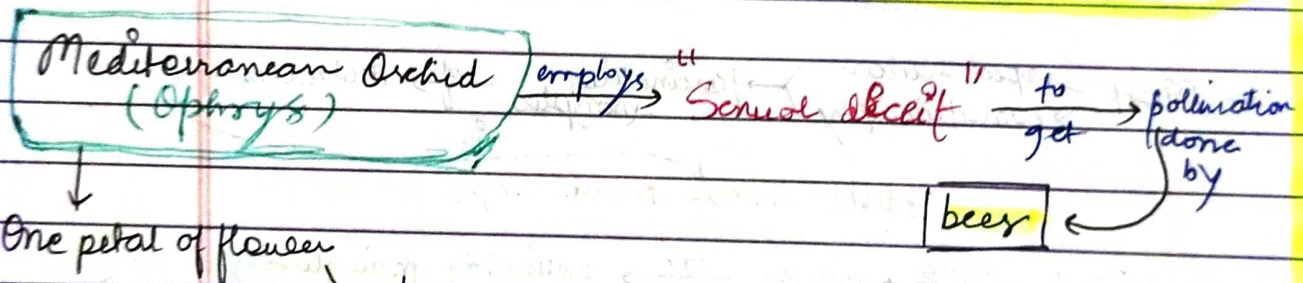 Mediterranean Orchid employs "Sexual deceit" to get pollination
(Ophrys) done
by
bees
One petal of flower